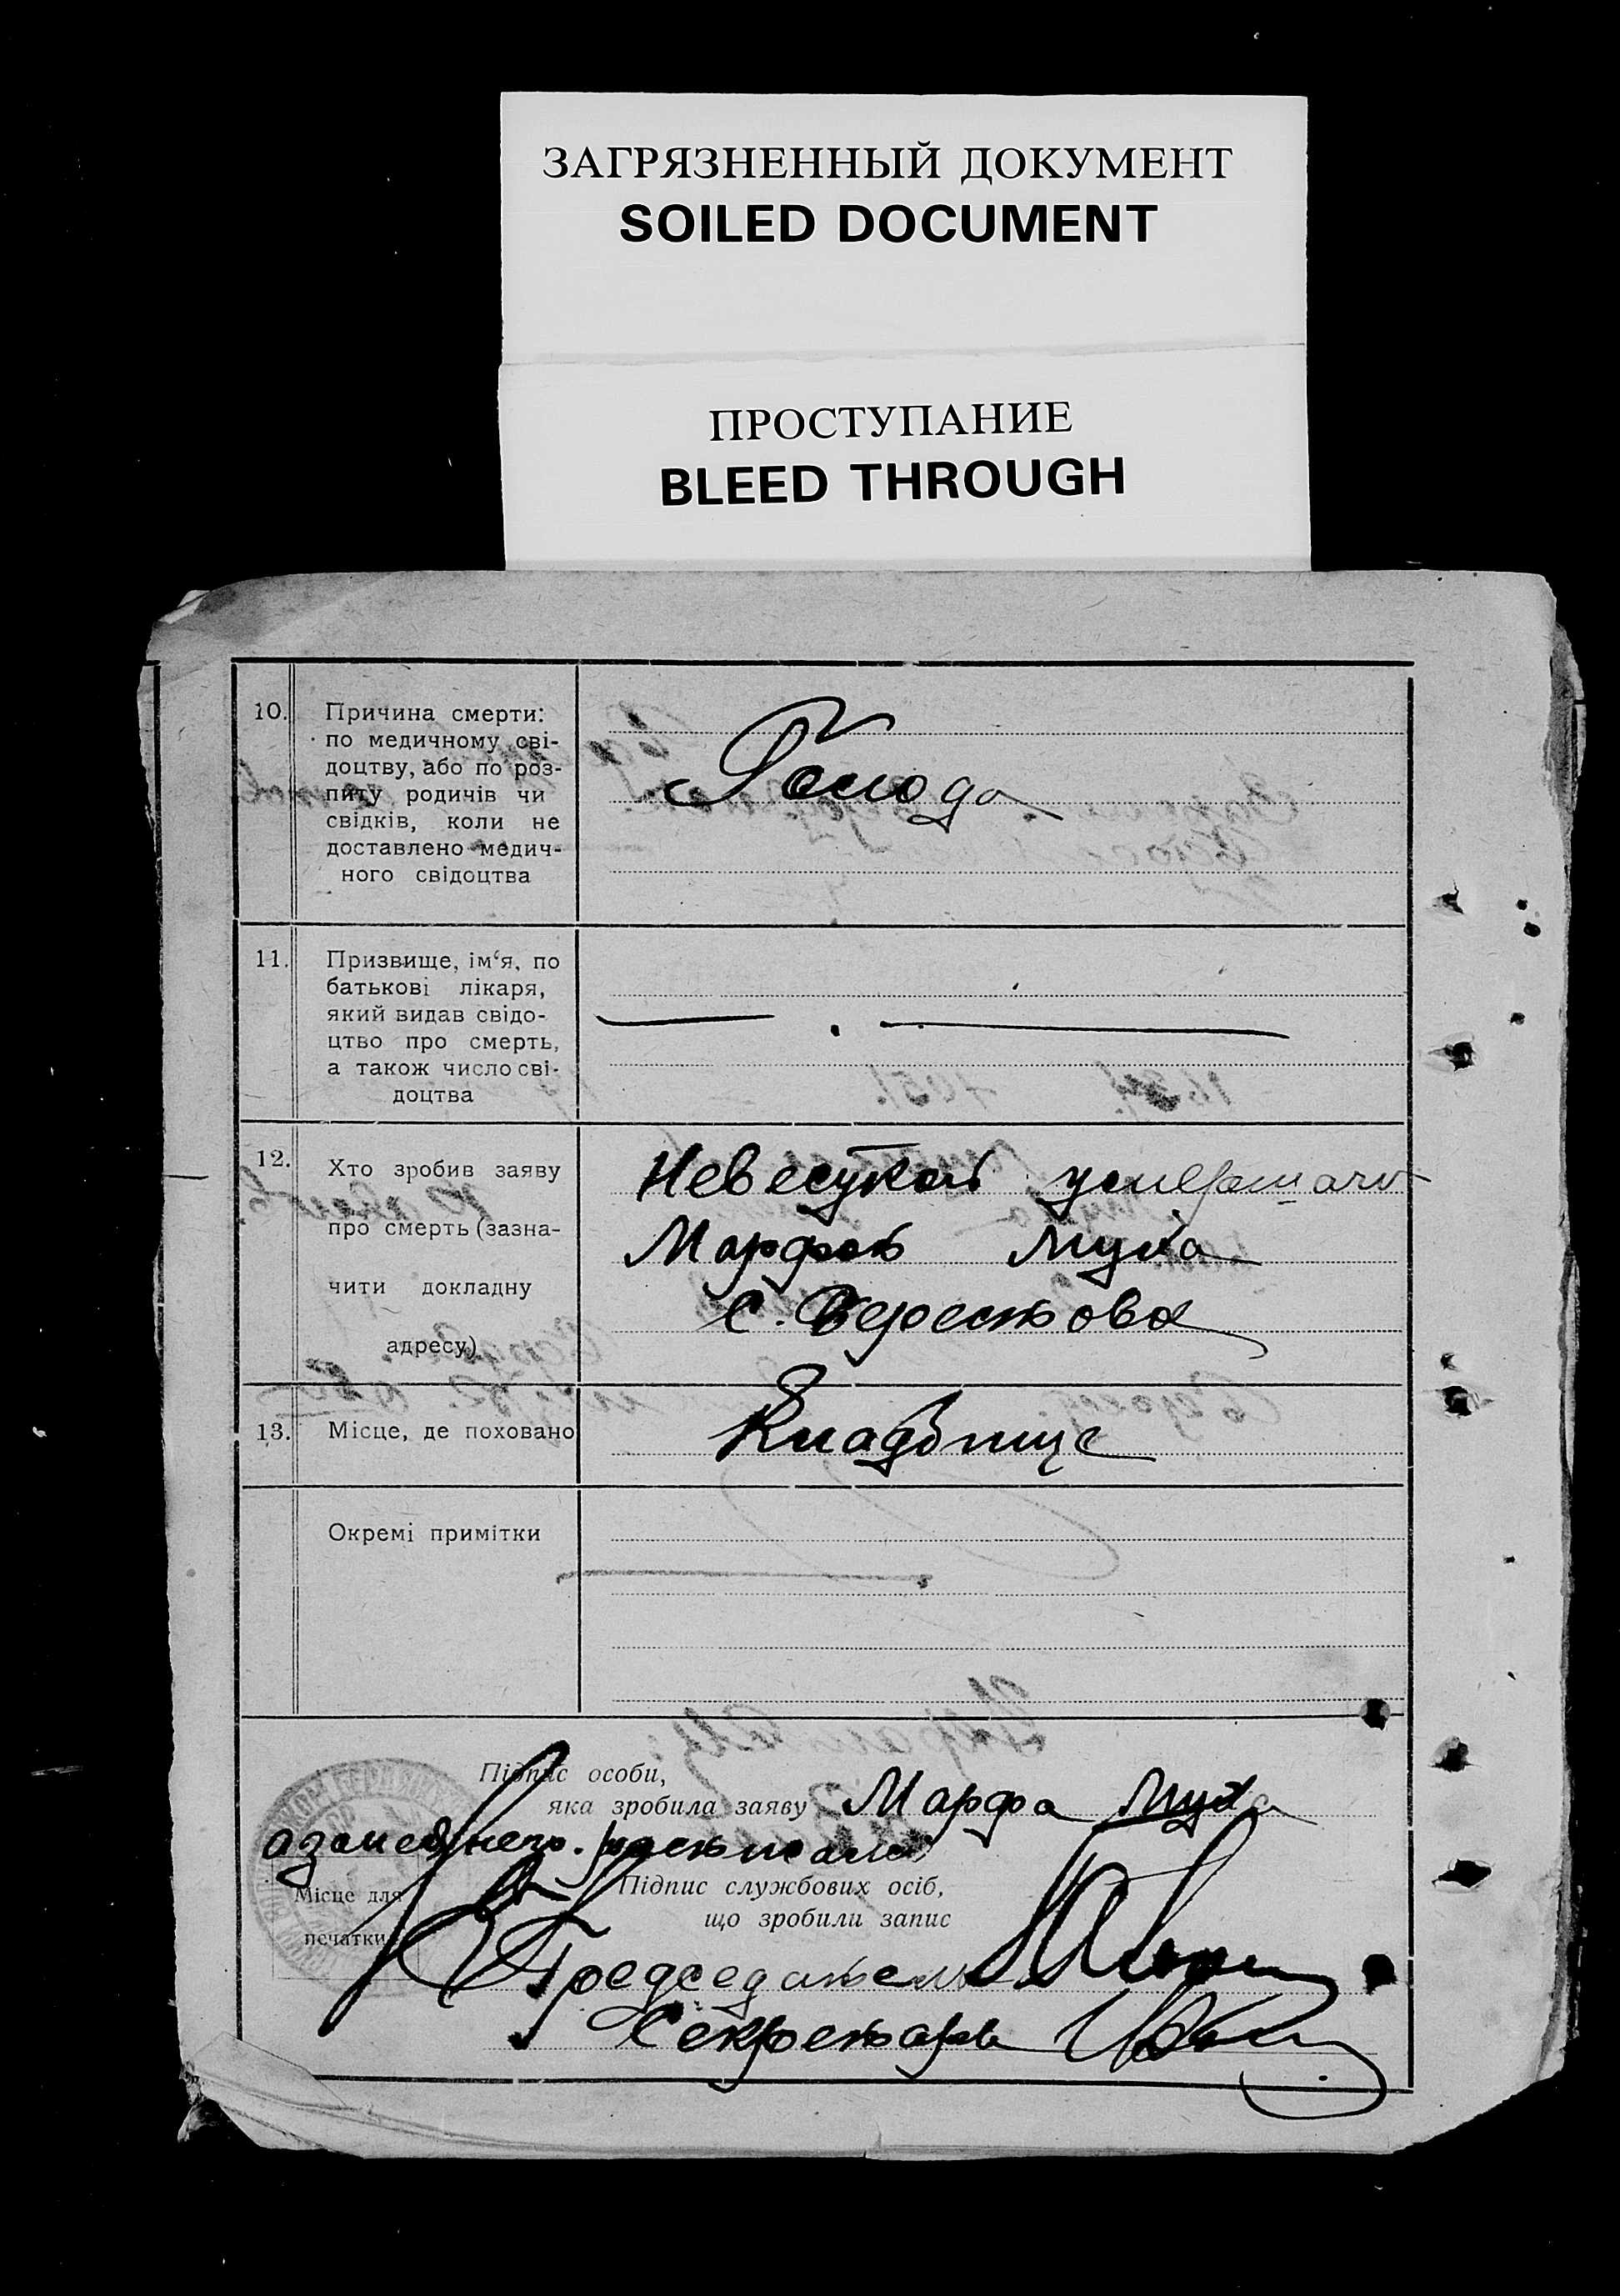 ЗАГРЯЗНЕННЫЙ ДОКУМЕНТ
SOILED DOCUMENT
ПРОСТУПАНИЕ
BLEED THROUGH
10.
Причина смерти:
по медичному сві-
доцтву, або по роз-
питу родичів чи
свідків, коли не
доставлено медич-
ного свідоцтва
с Голода
11.
Призвище, ім‘я, по
батькові лікаря,
який видав свідо-
цтво про смерть,
а також число сві-
доцтва
12.
Хто зробив заяву
про смерть (зазна-
чити докладну
адресу)
Невесткой
Марфой Муха
С. Берестова
13.
Місце, де поховано
Кладбище
Окремі примітки
Підпис особи,
яка зробила заяву Марфа Муха
Місце для
печатки
Підпис службових осіб,
що зробили запис
Председатель
Секретарь